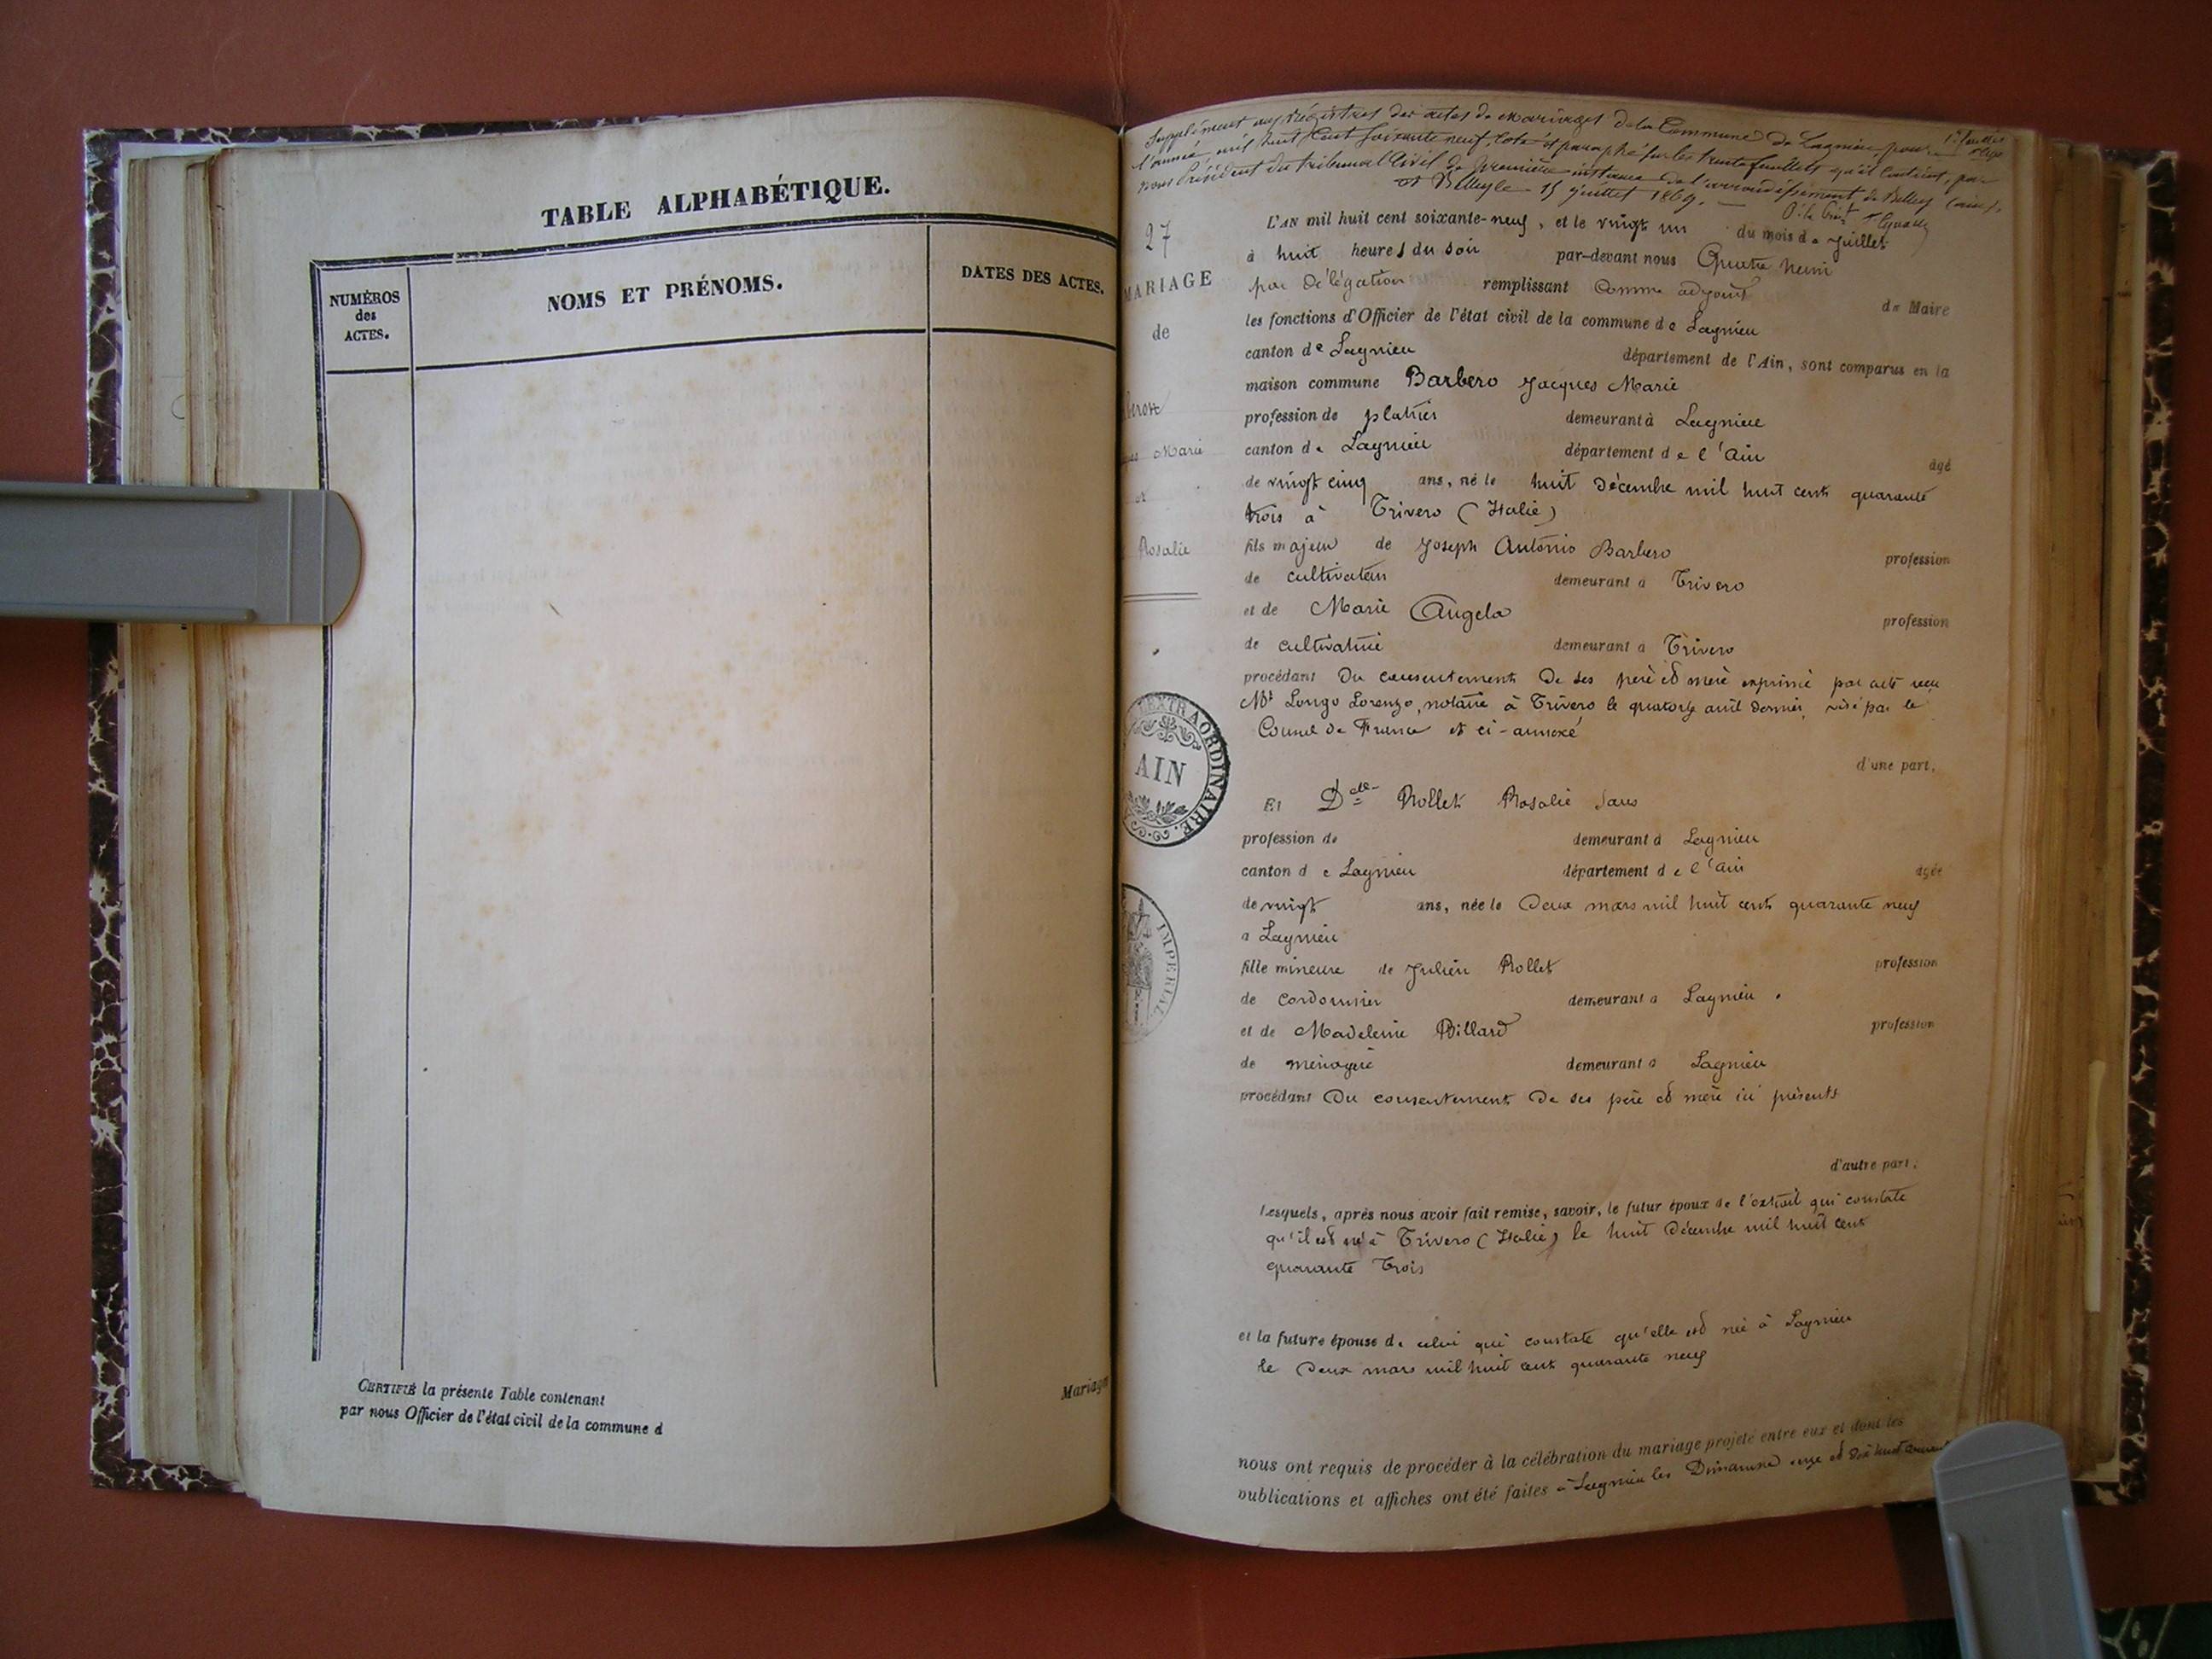 TABLE ALPHABÉTIQUE.
NUMÉROS
des
ACTES.
NOMS ET PRÉNOMS.
DATES DES ACTES.
CERTIFIÉ la présente Table contenant
par nous Officier de l'état civil de la commune d
Mariages
Supplément aux régistres des actes de mariages de la Commune de Lagnieu pour
l'année mil huit Cent soixante neuf, coté et paraphé sur les trente feuillets qu'il contient, par
nous Président du tribunal Civil de Première instance de l'arrondissement de Belley (ain),
15 juillet 1869.
27
MARIAGE
de
Marie
et
Rosalie
L'AN mil huit cent soixante-neuf, et le vingt un du mois de juillet
à huit heures du soir par-devant nous
par délégation remplissant comme adjoint
de Maire
les fonctions d'Officier de l'état civil de la commune de Lagnieu
canton de Lagnieu département de l'Ain, sont comparus en la
maison commune Barbero Jacques Marie
profession de platrier demeurant à Lagnieu
canton de Lagnieu département de l'Ain âgé
de vingt cinq ans, né le huit décembre mil huit cent quarante
trois à Trivero (Italie)
fils majeur de Joseph Antonio Barbero profession
de cultivateur demeurant à Trivero
et de Marie Angela profession
de cultivatrice demeurant à Trivero
procédant du consentement de ses père et mère exprimé par acte reçu
Mt Longo Lorenzo, notaire à Trivero le quatorze avril dernier, visé par le
Consul de France et ci-annexé
d'une part,
EXTRAORDINAIRE.
AIN
IMPERIAL
Et Delle Rollet Rosalie sans
profession de demeurant à Lagnieu
canton de Lagnieu département de l'Ain âgée
de vingt ans, née le deux mars mil huit cent quarante neuf
a Lagnieu
fille mineure de Julien Rollet profession
de cordonnier demeurant à Lagnieu
et de Madeleine Billard profession
de ménagère demeurant à Lagnieu
procédant du consentement de ses père et mère ici présents
d'autre part;
Lesquels, après nous avoir fait remise, savoir, le futur époux de l'extrait qui constate
qu'il est né à Trivero (Italie) le huit décembre mil huit cent
quarante trois
et la future épouse de celui qui constate qu'elle est née à Lagnieu
le deux mars mil huit cent quarante neuf
nous ont requis de procéder à la célébration du mariage projeté entre eux et dont les
publications et affiches ont été faites à Lagnieu les Dimanche onze et dix huit courant